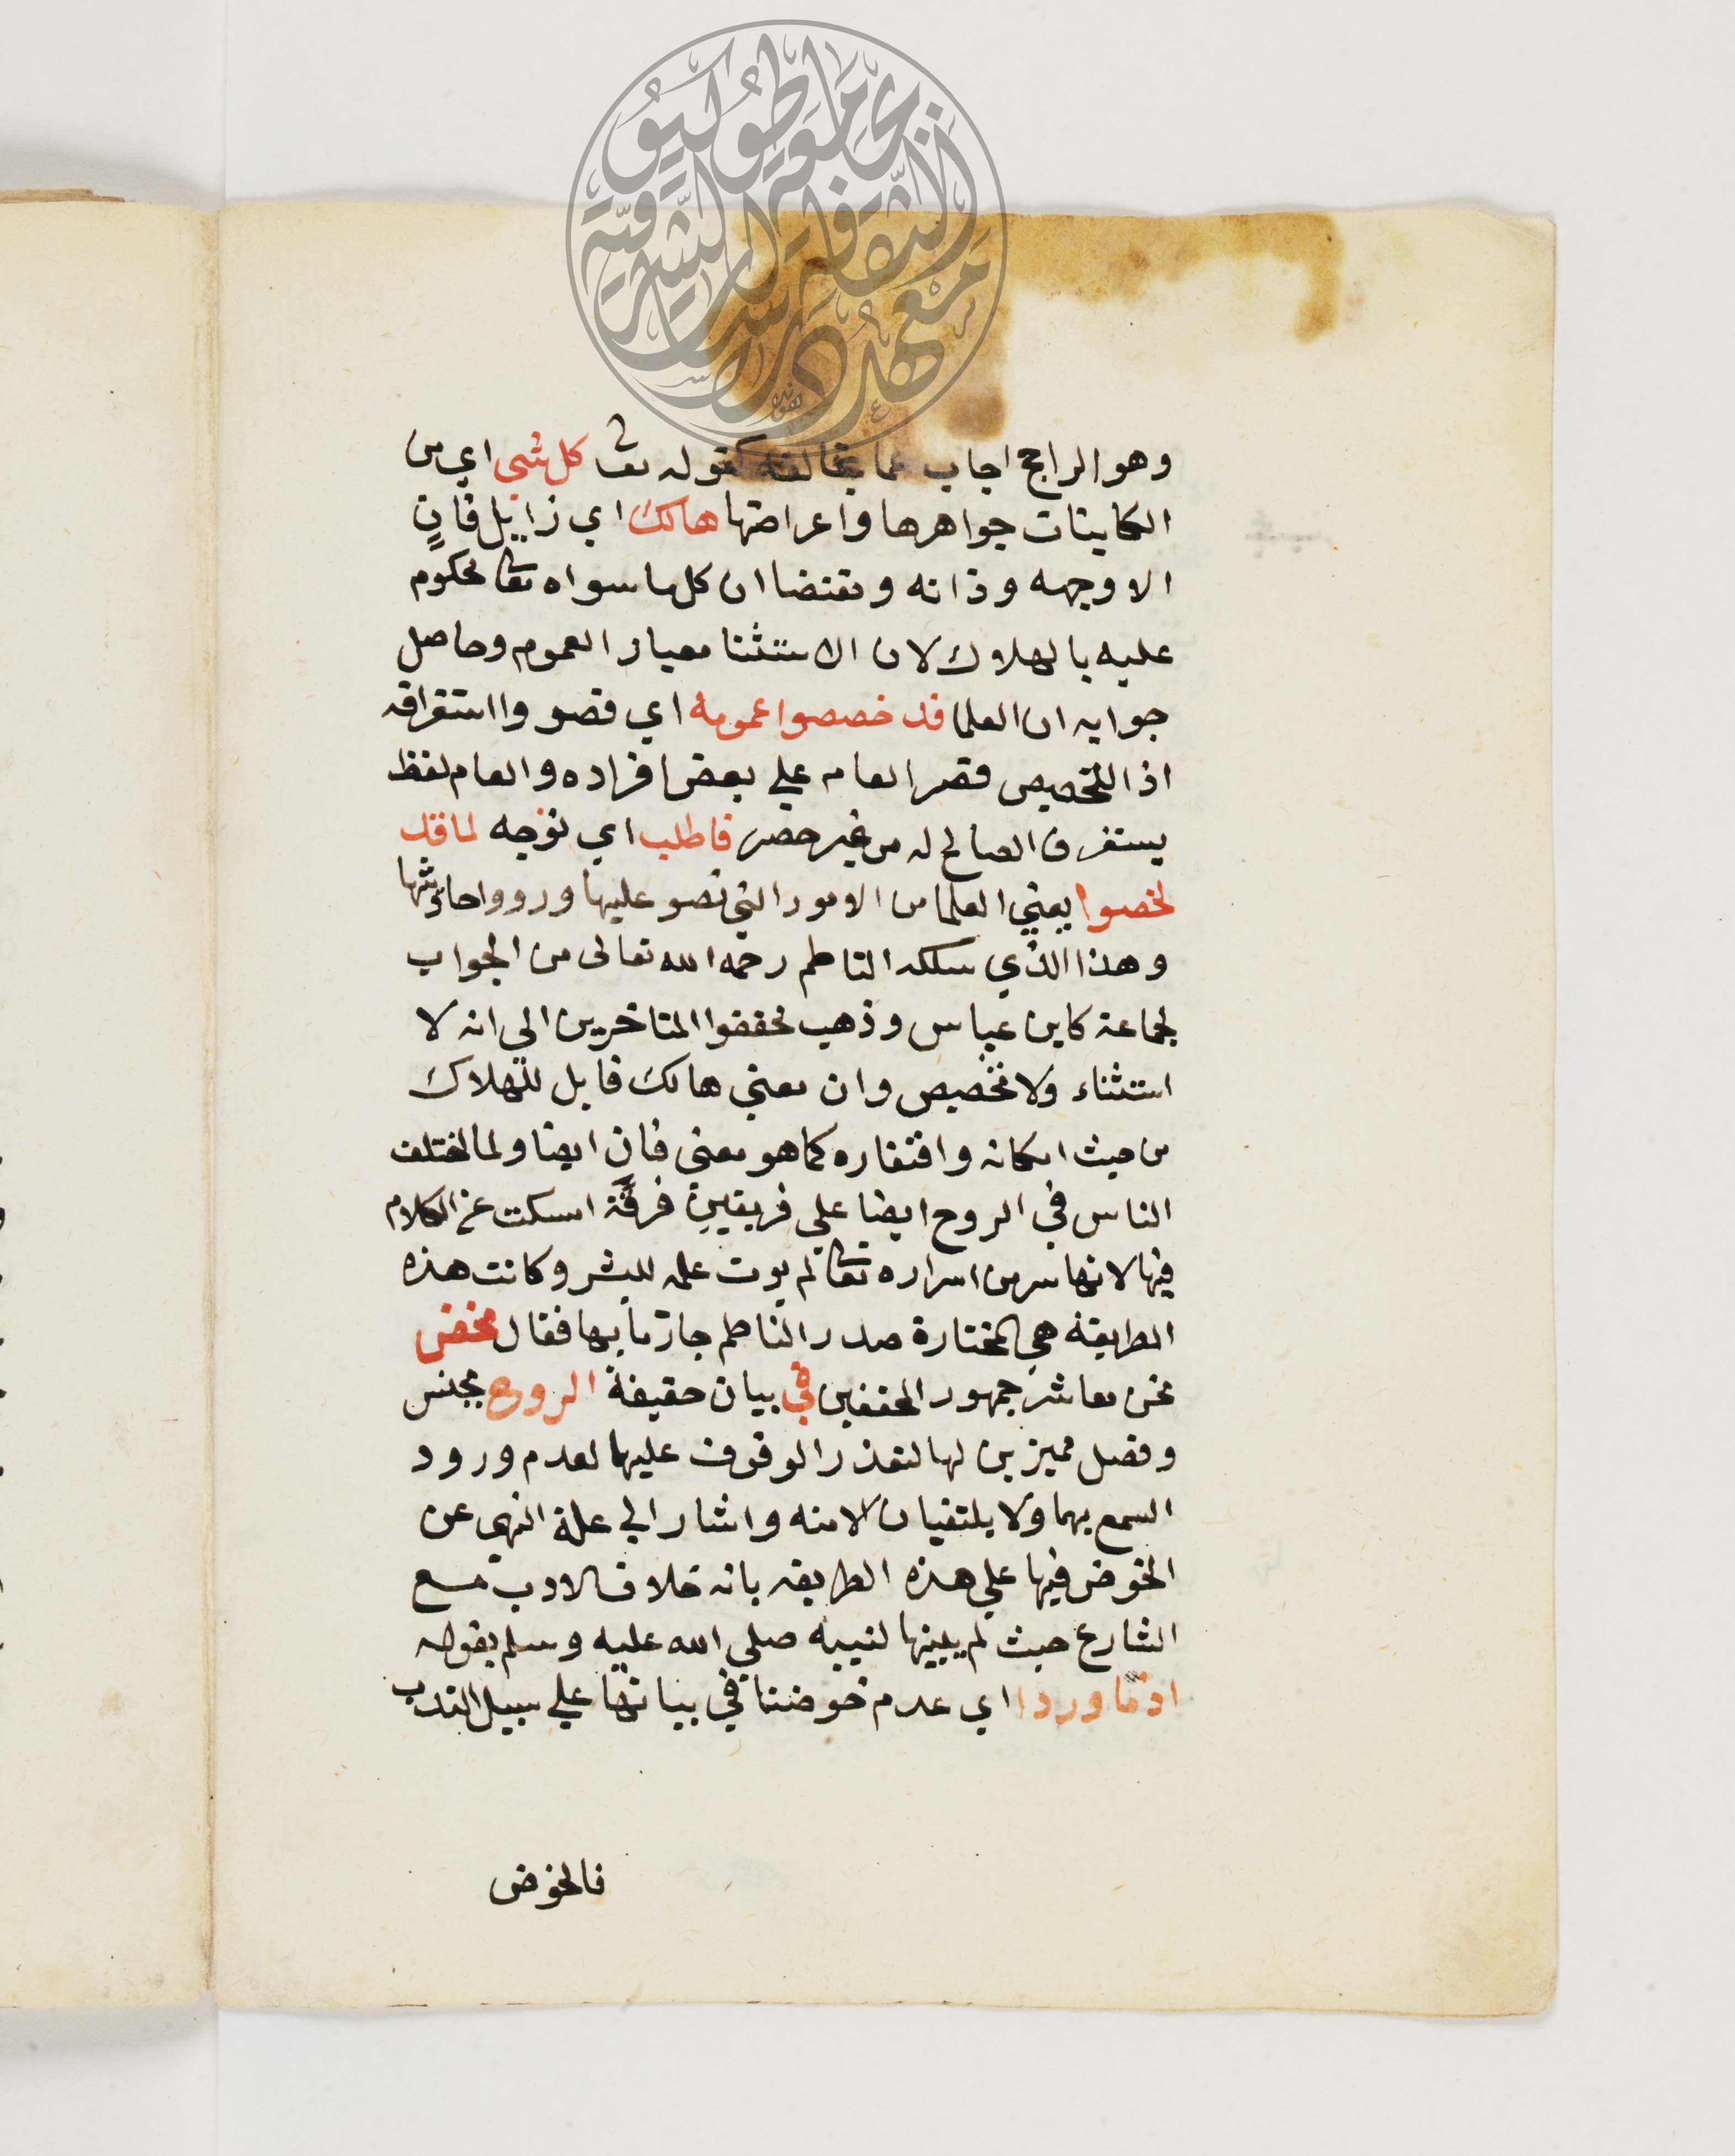 وهو الراجح اجاب عما يخالفه كقوله تعا كل شي اي من
الكاينات جواهرها واعراضها هالك اي زايل فانٍ
الا وجهه وذاته ومقتضا ان كل ما سواه تعا محكوم
عليه بالهلاك لان الاستثنا معيار العموم وحاصل
جوابه ان العلما قد خصصوا عمومه اي قصروا استغراقه
اذ التخصيص قصر العام علي بعض افراده والعام لفظ
يستغرق الصالح له من غير حصر فاطلب اي توجه لما قد
لخصوا يعني العلما من الامور التي نصو عليها وروو احاديثها
وهذا الذي سلكه الناظم رحمه الله تعالى من الجواب
لجماعة كابن عباس وذهب محققوا المتاخرين الي انه لا
استثناء ولا تخصيص وان معني هالك قابل للهلاك
من حيث امكانه وافتقاره كما هو معني فان ايضا ولما اختلف
الناس في الروح ايضا علي فريقين فرقة امسكت عن الكلام
فيها لانها سر من اسراره تعا لم يوت علمه للبشر وكانت هذه
الطريقة هي المختارة صدر الناظم جازما بها فقال مخض
نحن معاشر جمهور المحققين في بيان حقيقة الروح بجنس
وفصل مميزين لها لتعذر الوقوف عليهما لعدم ورود
السمع بهما ولا يلتقيان الا منه واشار الي علة النهي عن
الخوض فيها علي هذه الطريقه بانه خلاف الادب مع
الشارع حيث لم يبينها لنبيه صلي الله عليه وسلم بقوله
اذ ما وردا اي عدم خوضنا في بيانها علي سبيل الندب
فالخوض